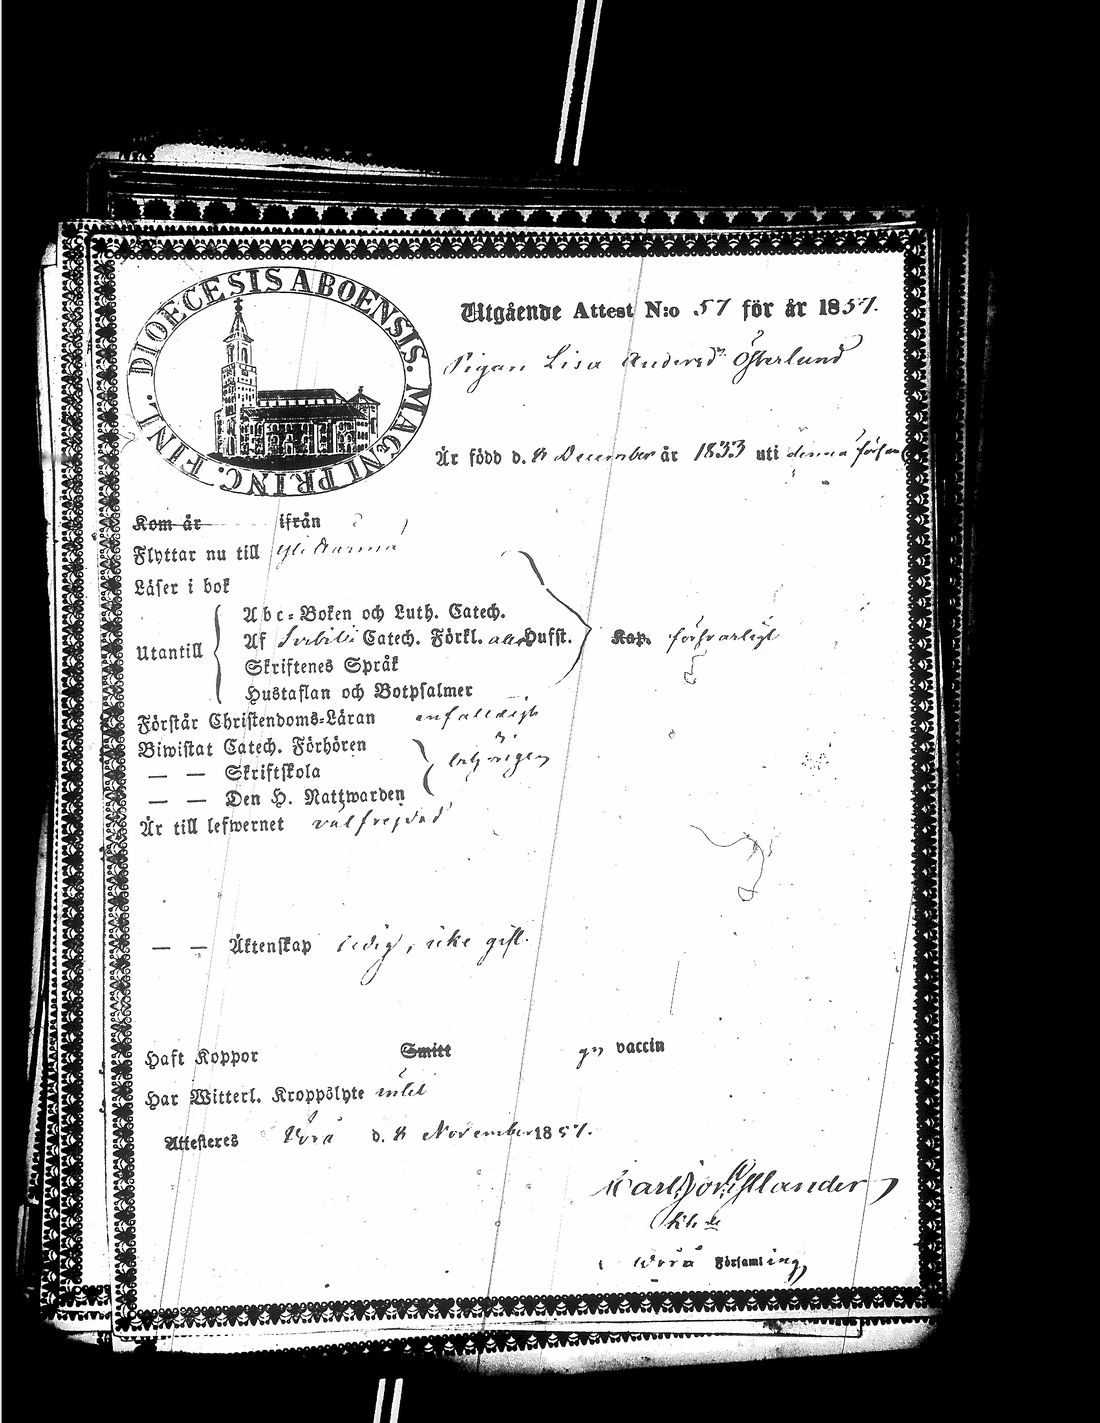 DIOECESIS ABOENSIS. MAGNI PRINC. FINL.
Utgående Attest N:o 57 för år 1857.
Pigan Lisa Andersdr Österlund
Är född d. 8 December år 1833 uti denna förs
Kom år ifrån
Flyttar nu till
Läser i bok
Utantill
Abc-Boken och Luth. Catech.
Af Svebilii Catech. Förkl. alla Hufst.
Skriftenes Språk
Hustaflan och Botpsalmer
Kap. försvarligt
Förstår Christendoms-Läran enfaldigt
Biwistat Catech. Förhören
— — Skriftskola
— — Den H. Nattwarden
behörigen
Är till lefwernet välfrejdad
— — Äktenskap ledig, icke gift.
Haft Koppor Smitt gm vaccin
Har Witterl. Kroppslyte intet
Attesteres Vörå d. 8 November 1857.
Vörå Församling